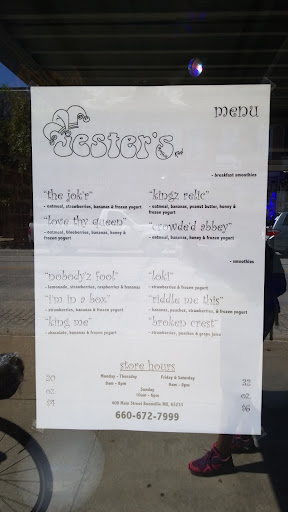 Jester's
menu
- breakfast smoothies
"the jok'r"
- oatmeal, strawberries, bananas & frozen yogurt
"kingz relic"
- oatmeal, bananas, peanut butter, honey & frozen yogurt
"love thy queen"
- oatmeal, blueberries, bananas, honey & frozen yogurt
"crowde'd abbey"
- oatmeal, bananas, honey & frozen yogurt
- smoothies
"nobody'z fool"
- lemonade, strawberries, raspberries & bananas
"loki"
- strawberries & frozen yogurt
"i'm in a box"
- strawberries, bananas & frozen yogurt
"riddle me this"
- bananas, peaches, strawberries, & frozen yogurt
"king me"
- chocolate, bananas & frozen yogurt
"broken crest"
- strawberries, peaches & grape juice
store hours
Monday - Thursday
8am - 8pm
Friday & Saturday
8am - 9pm
Sunday
10am - 6pm
20
oz
$5
32
oz
$6
400 Main Street Boonville MO, 65233
660-672-7999